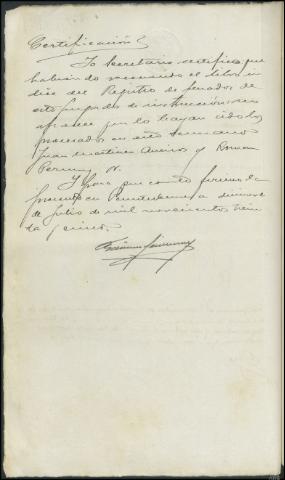 Certificación
Yo Secretario certifico que
habiendo examinado el libro in
dice del Registro de penados de
este Juzgado de instrucción, no
aparece que lo hayan sido los
procesados en este sumario
Juan Martinez Aneiros y Roman
Y para que conste firmo la
presente en Pontedeume a
de Julio de mil novecientos trein
ta y cinco.